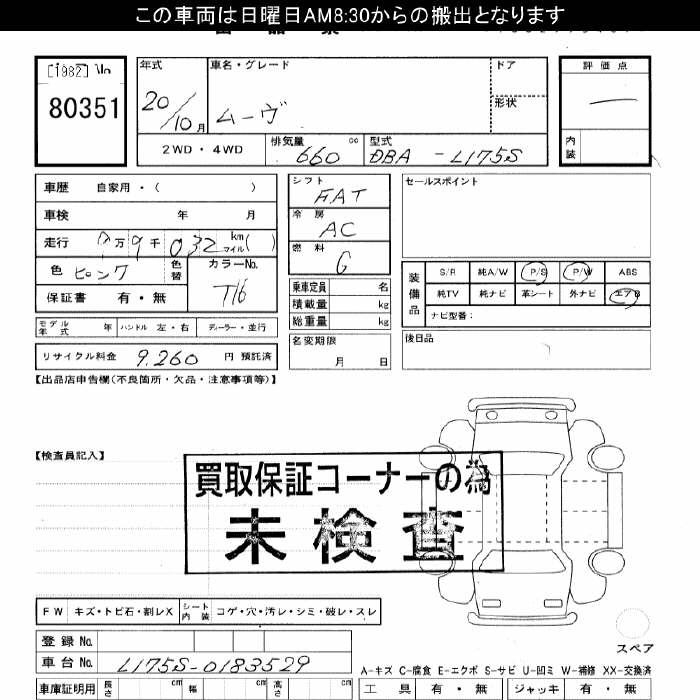 この車両は日曜日AM8:30からの搬出となります
[1982] No
80351
年式
20/10月
車名・グレード
ムーヴ
ドア
形状
評価点
内装
2WD・4WD
排気量
660 cc
型式
DBA - L175S
車歴 自家用・( )
車検 年 月
走行 万 9千 032 km マイル ( )
色 ピンク
色替
カラーNo.
T16
保証書 有・無
モデル年式 年 ハンドル 左・右 ディーラー・並行
リサイクル料金 9,260 円 預託済
シフト
FAT
冷房
AC
燃料
G
乗車定員 名
積載量 kg
総重量 kg
名変期限
月 日
セールスポイント
装備品
S/R 純A/W P/S P/W ABS
純TV 純ナビ 革シート 外ナビ エアB
ナビ型番:
後日品
【出品店申告欄(不良箇所・欠品・注意事項等)】
【検査員記入】
買取保証コーナーの為
未検査
FW キズ・トビ石・割レX シート内装 コゲ・穴・汚レ・シミ・破レ・スレ
スペア
登録No.
車台No. L175S-0183529
A-キズ C-腐食 E-エクボ S-サビ U-凹ミ W-補修 XX-交換済
車庫証明用 長さ cm 幅 cm 高さ cm
工具 有・無 ジャッキ 有・無